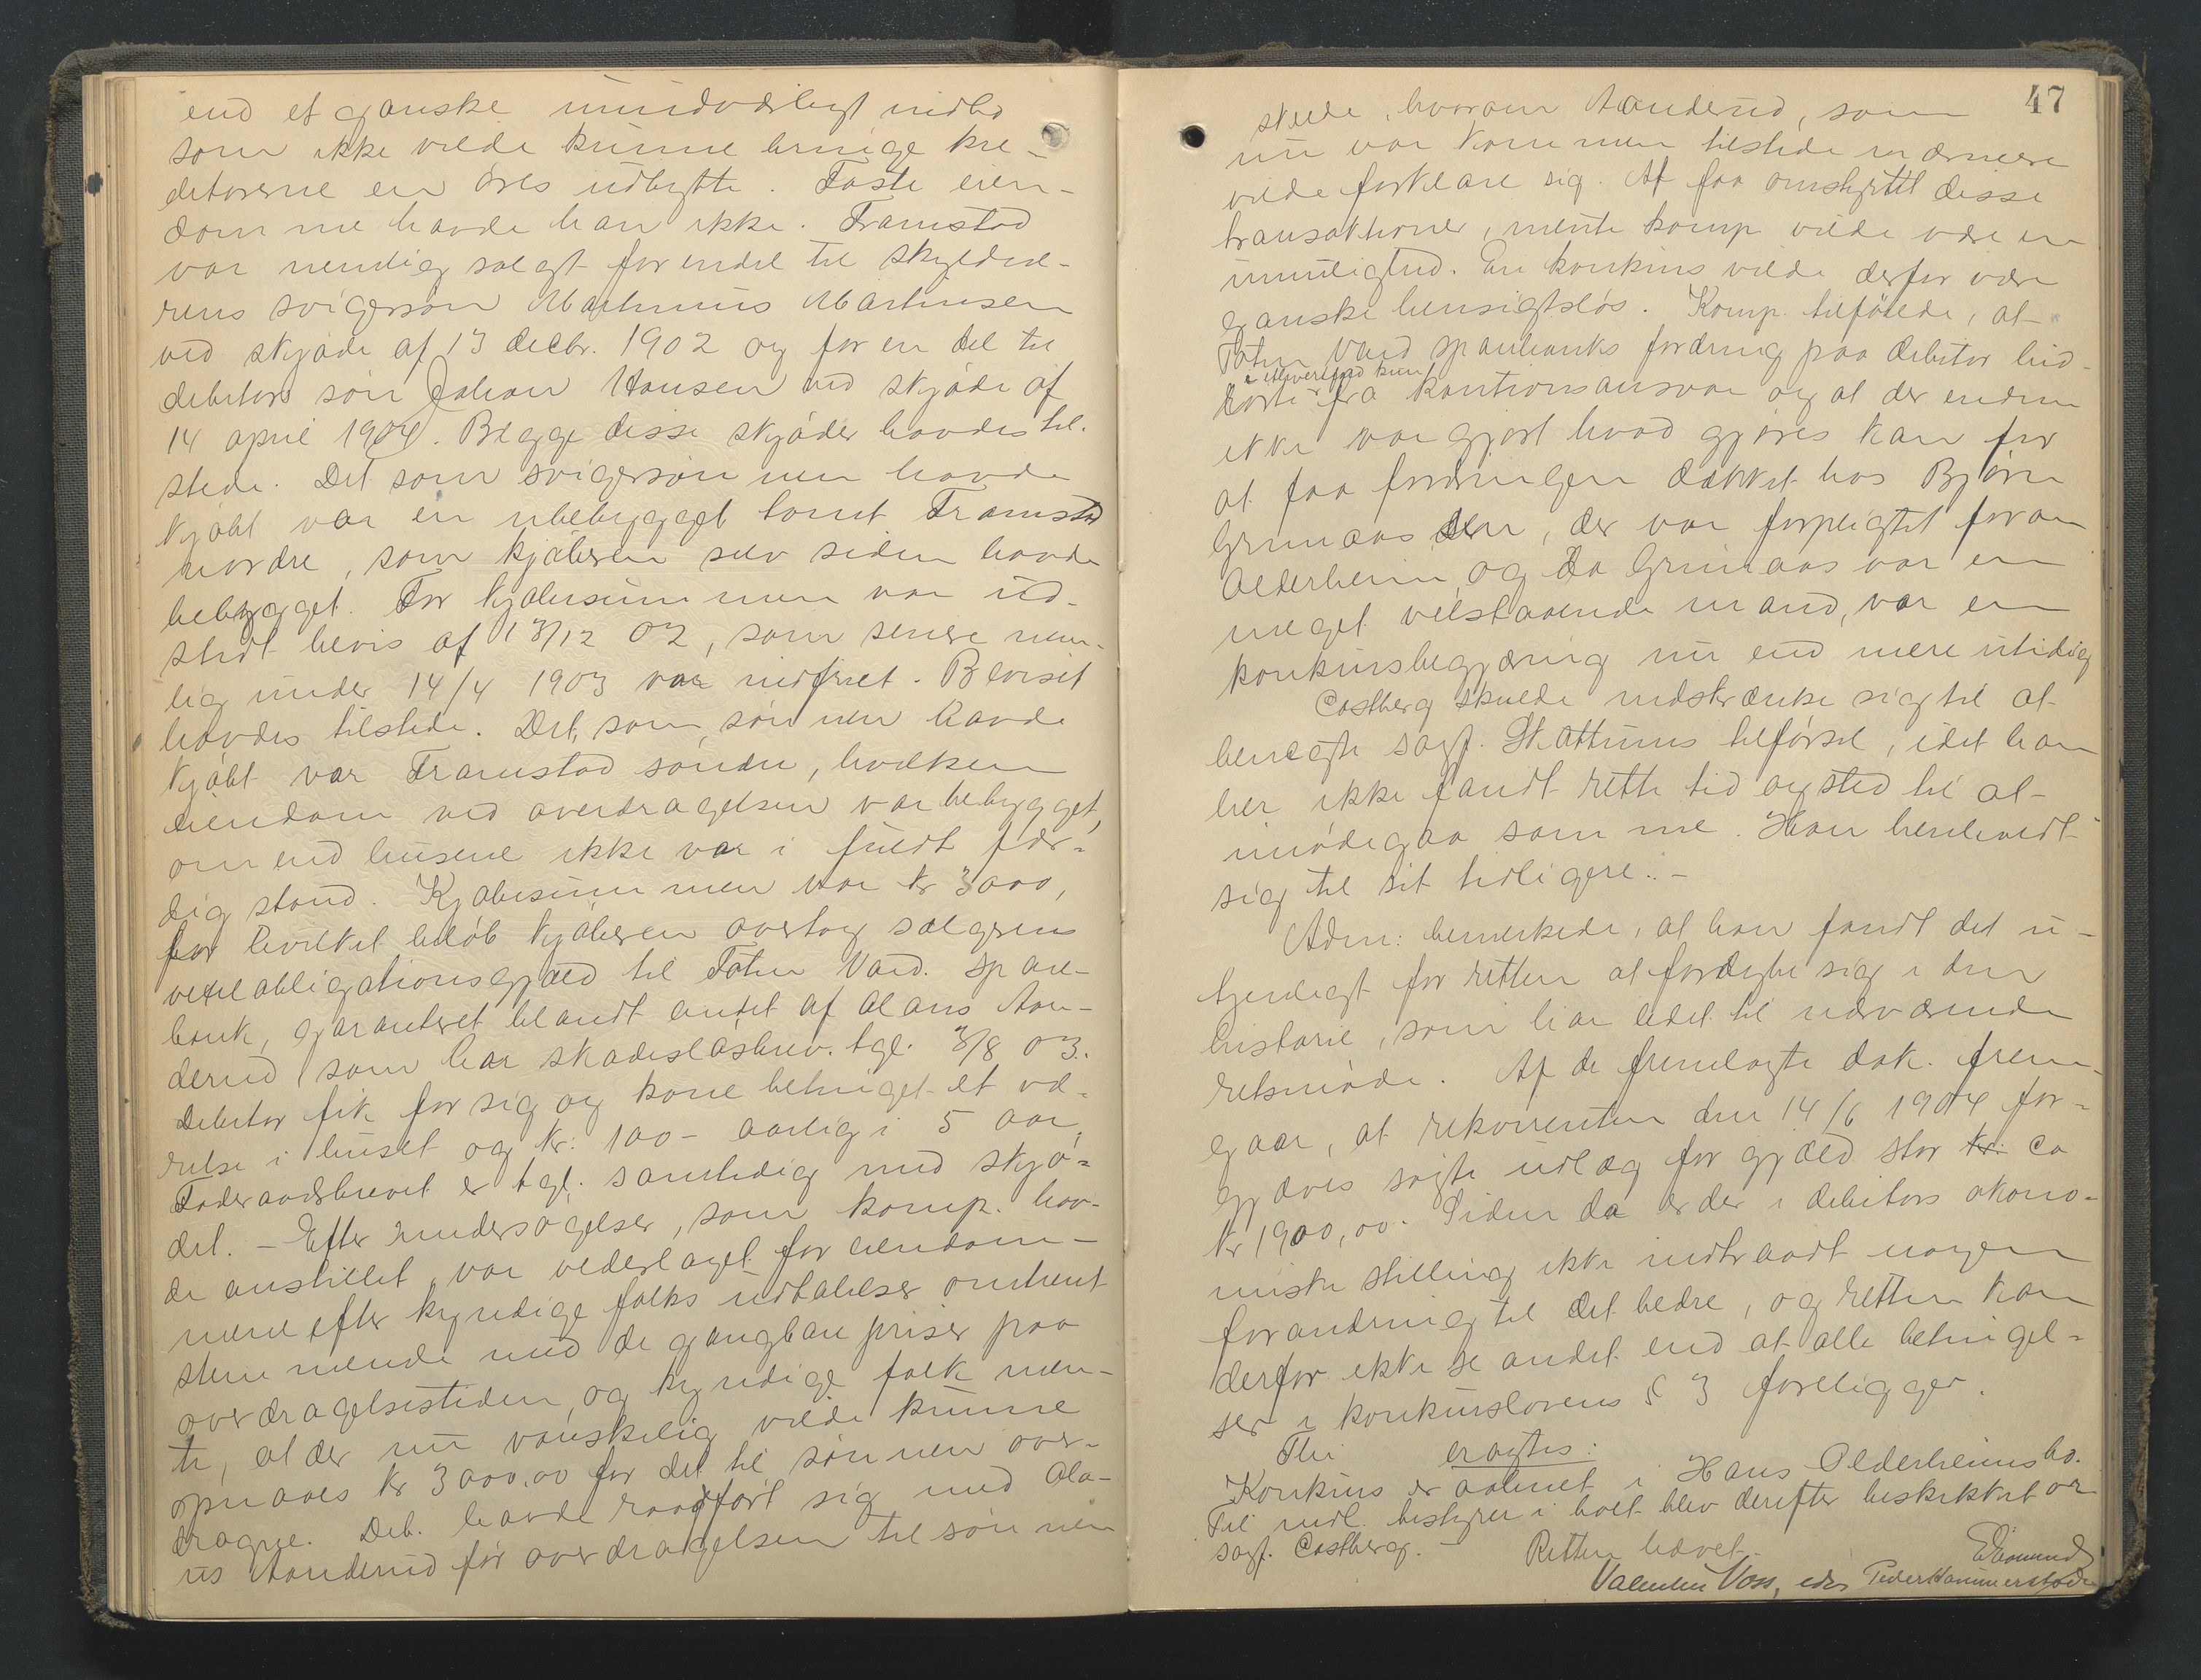 end et ganske ubetydeligt indbo
som ikke vilde kunne bringe kre-
ditorerne en øres udbytte. Faste eien-
domme havde han ikke. Framstad
var nemlig solgt for endel til skyldne-
rens svigersøn Martinius Martinsen
ved skjøde af 13 decbr. 1902 og for en del til
debitors søn Johan Hansen ved skjøde af
14 april 1904. Begge disse skjøder havdes til-
stede. Det som svigersønnen havde
kjøbt var en ubebygget tomt Framstad
nordre, som kjøberen selv siden havde
bebygget. For kjøbesummen var ud-
stedt bevis af 13/12 02, som senere nem-
lig under 14/4 1903 var indfriet. Beviset
havdes tilstede. Det, som sønnen havde
kjøbt var Framstad søndre, hvilken
eiendom ved overdragelsen var bebygget,
om end husene ikke var i fuldt fær-
dig stand. Kjøbesummen var kr 3000,
for hvilket beløb kjøberen overtog sælgerens
vexelobligationsgjæld til Toten Vard. spare-
bank, garanteret blandt andet af Olaus Aan-
derud som har skadesløsbrev. tgl. 3/8 03.
Debitor fik for sig og kone betinget et væ-
relse i huset og kr: 100 - aarlig i 5 aar,
Føderaadsbrevet er tgl. samtidig med skjø-
det. - Efter undersøgelser, som komp. hav-
de anstillet, var vederlaget for eiendom-
mene efter kyndige folks udtalelser omtrent
stemmende med de gangbare priser paa
overdragelsestiden, og kyndige folk men-
te, at der nu vanskelig vilde kunne
opnaaes kr 3000.00 for det til sønnen over-
dragne. Deb. havde raadført sig med Ola-
us Aanderud før overdragelsen til sønnen
47
skede, hvorom Aanderud, som
nu var kommen tilstede nærmere
vilde forklare sig. At faa omstyrtet disse
transaktioner, mente komp. vilde være en
umulighed. En konkurs vilde derfor være
ganske hensigtsløs. Komp. tilføiede, at
Toten Vard sparebanks fordring paa debitor hid-
rørte fra kautionsansvar og at der endnu
ikke var gjort hvad gjøres kan for
at faa fordringen dækket hos Bjørn
Grimaas, der var forpligtet foran
Olderheim, og da Grimaas var en
meget velstaaende mand, var en
konkursbegjæring nu end mere utidig
Castberg skulde indskrænke sig til at
benegte sagf. Skattums tilførsel, idet han
her ikke fandt rette tid og sted til at
imødegaa samme. Han henholdt
sig til sit tidligere. -
Adm: bemerkede, at han fandt det u-
tjenligt for retten at fordybe sig i den
historie, som har ledet til nærværende
retsmøde. Af de fremlagte dok. frem-
gaar, at rekvirenten den 14/6 1904 for-
gjæves søgte udlæg for gjæld stor ca
kr 1900,00. Siden da er der i debitors økono-
miske stilling ikke indtraadt nogen
forandring til det bedre, og retten kan
derfor ikke se andet end at alle betingel-
ser i konkurslovens § 3 foreligger.
Thi eragtes:
Konkurs er aabnet i Hans Olderheims bo.
Til midl. bestyrer i boet blev derefter beskikket or
sagf. Castberg. - Retten hævet.
Valentin Voss, Peder Hammerstad